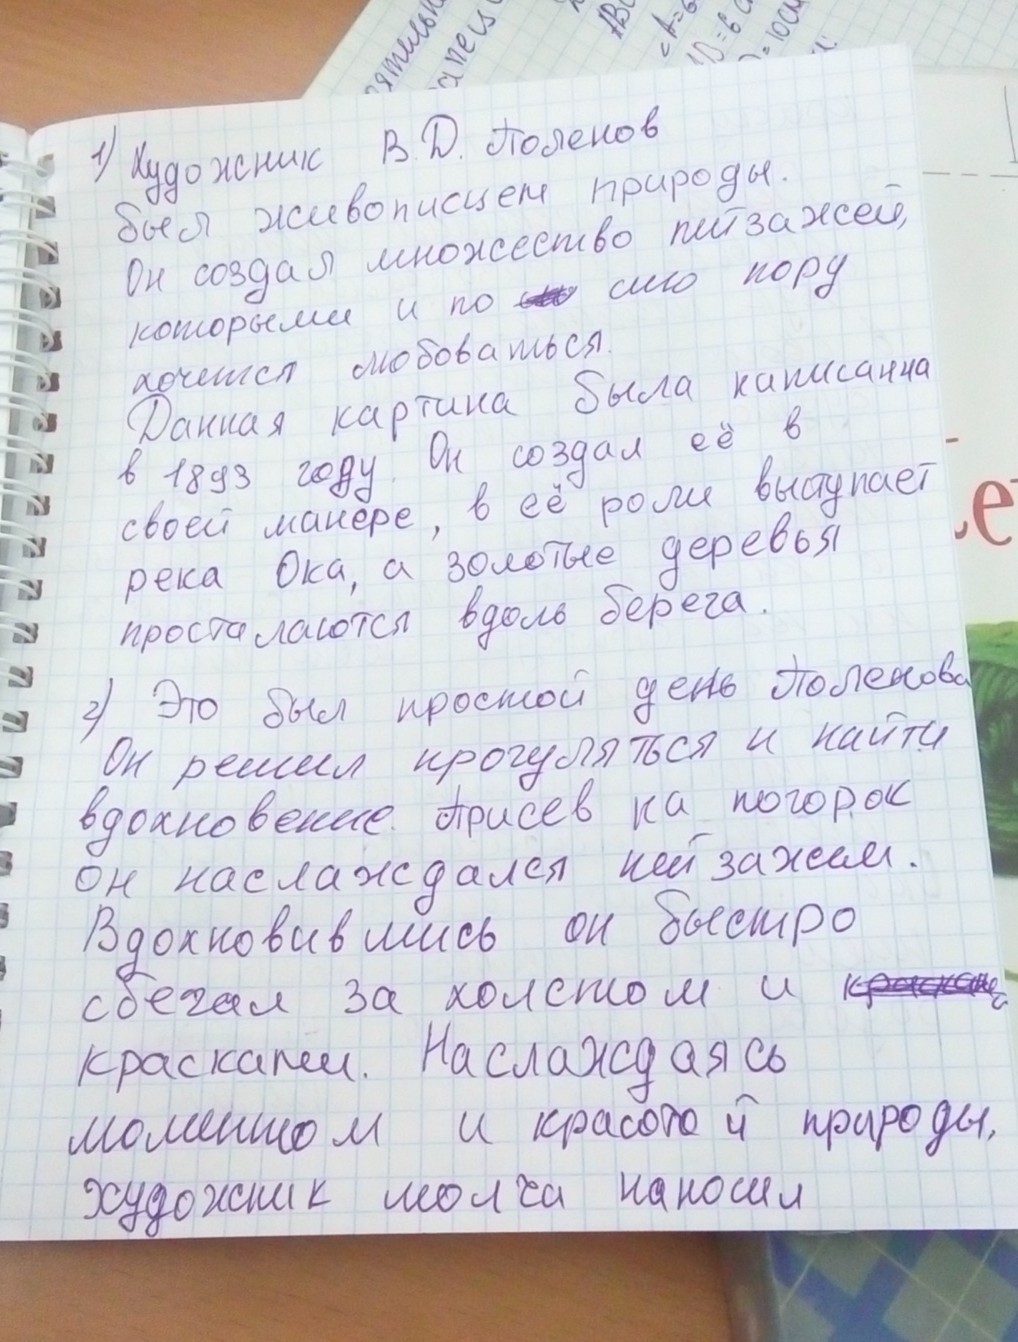 1) Художник В.Д. Поленов
был живописцем природы.
Он создал множество пейзажей,
которыми и по сию пору
хочется любоваться.
Данная картина была написанна
в 1893 году. Он создал её в
своей манере, в её роли выступает
река Ока, а золотые деревья
росталаются вдоль берега.
2) Это был простой день Поленова
Он решил прогуляться и найти
вдохновение. Присев на погорок
он наслаждался пейзажем.
Вдохновившись он быстро
сбегал за холстом и
красками. Наслаждаясь
моментом и красотой природы,
художник молча наносил